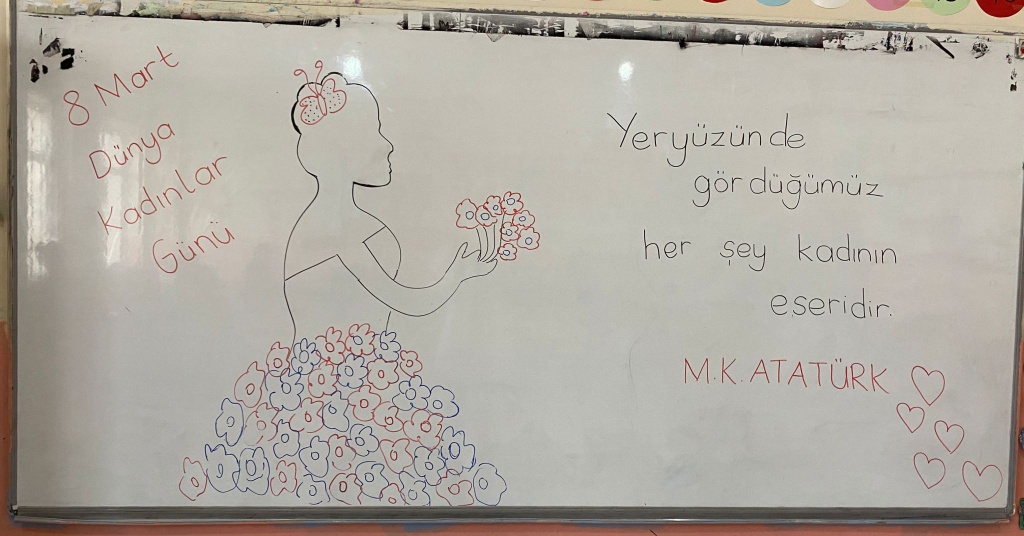 8 Mart
Dünya
Kadınlar
Günü
Yeryüzünde
gördüğümüz
her şey kadının
eseridir.
M.K. ATATÜRK